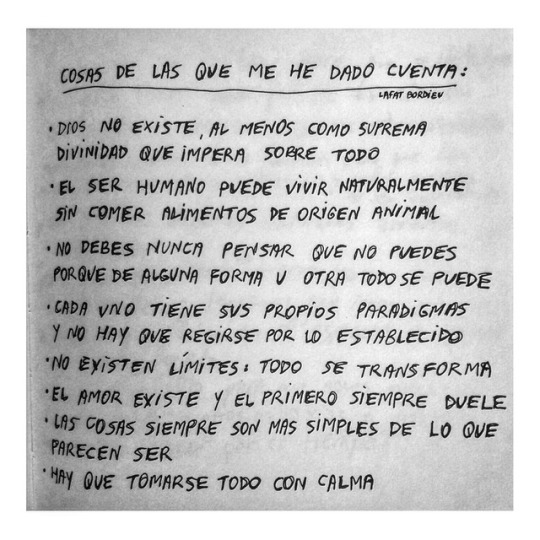 COSAS DE LAS QUE ME HE DADO CUENTA:
LAFAT BORDIEU
• DIOS NO EXISTE, AL MENOS COMO SUPREMA
DIVINIDAD QUE IMPERA SOBRE TODO
• EL SER HUMANO PUEDE VIVIR NATURALMENTE
SIN COMER ALIMENTOS DE ORIGEN ANIMAL
• NO DEBES NUNCA PENSAR QUE NO PUEDES
PORQUE DE ALGUNA FORMA U OTRA TODO SE PUEDE
• CADA UNO TIENE SUS PROPIOS PARADIGMAS
Y NO HAY QUE REGIRSE POR LO ESTABLECIDO
• NO EXISTEN LÍMITES: TODO SE TRANSFORMA
• EL AMOR EXISTE Y EL PRIMERO SIEMPRE DUELE
• LAS COSAS SIEMPRE SON MAS SIMPLES DE LO QUE
PARECEN SER
• HAY QUE TOMARSE TODO CON CALMA